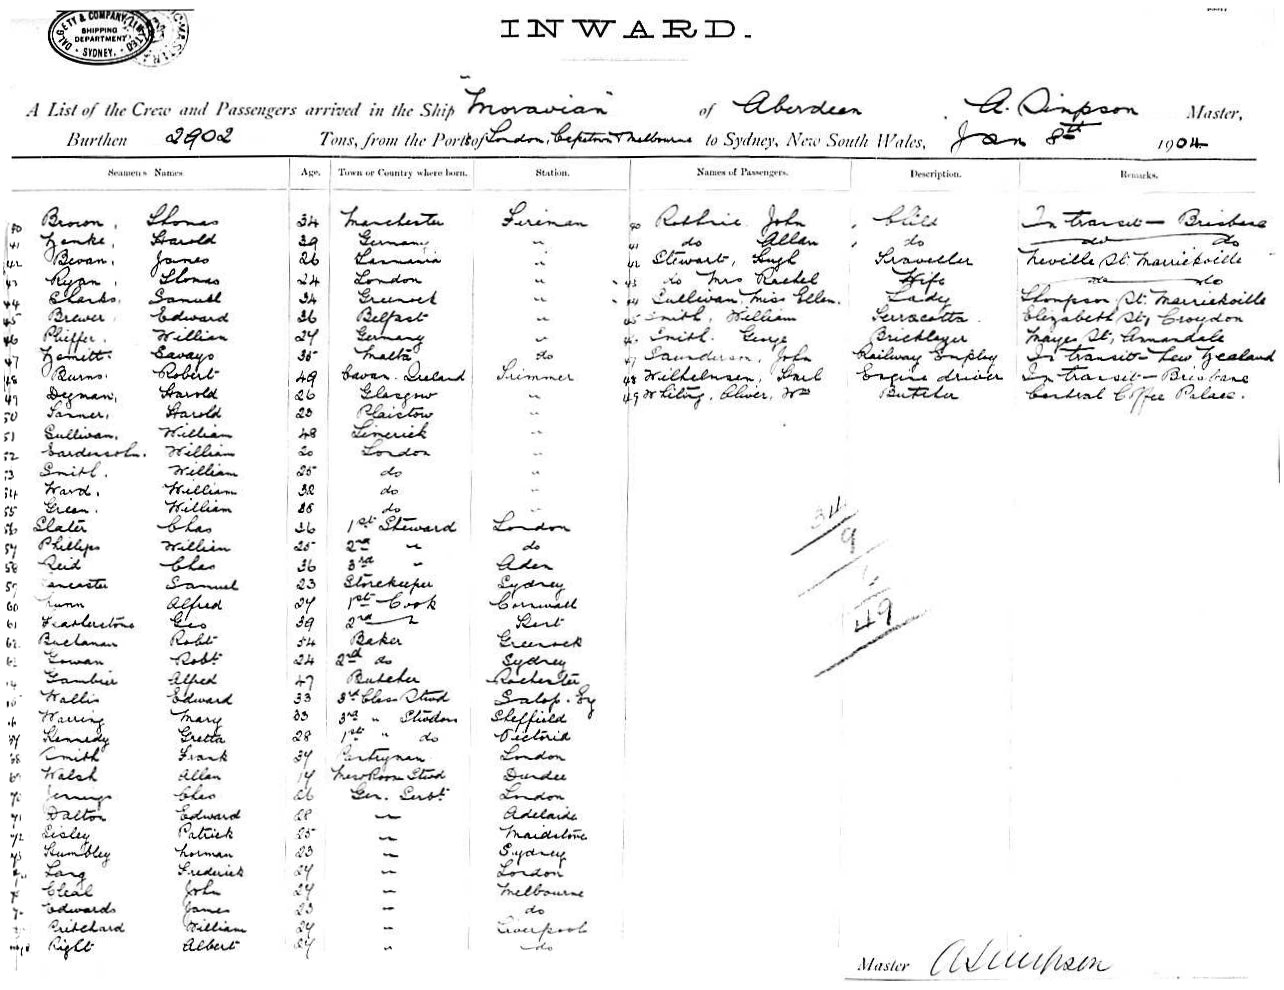 DALGETY & COMPANY, LIMITED
SHIPPING
DEPARTMENT
SYDNEY.
INWARD.
A List of the Crew and Passengers arrived in the Ship "Moravian" of Aberdeen, A. Simpson Master,
Burthen 2902 Tons, from the Ports of London, Capetown & Melbourne to Sydney, New South Wales, Jan 8th 1904
Seamen's Names. Age. Town or Country where born. Station. Names of Passengers. Description. Remarks.
40 Brown, Thomas 34 Manchester Fireman 40 Rothrie John Child In transit - Brisbane
41 Henke, Harold 39 Germany " 41 do Allan do do do
42 Bevan, James 26 Tasmania " 42 Stewart, Hugh Traveller Neville St. Marrickville
43 Ryan, Thomas 24 London " 43 do Mrs Rachel Wife do do
44 Clarke, Samuel 34 Greenock " 44 Sullivan Miss Ellen. Lady Thompson St. Marrickville
45 Brewer, Edward 36 Belfast " 45 Smith, William Terracotta Elizabeth St, Croydon
46 Phieffer, William 27 Germany " 46 Smith. George Bricklayer Mayes St, Annandale
47 Zemitt. Savayo 35 Malta do 47 Saunderson, John Railway Employ In transit - New Zealand
48 Burns. Robert 49 Cavan. Ireland Trimmer 48 Wilhelmsen, Karl Engine driver In transit - Brisbane
49 Degnan, Harold 26 Glasgow " 49 Whiting, Oliver, Wm Butcher Central Coffee Palace.
50 Larner, Harold 23 Plaistow "
51 Sullivan, William 48 Limerick "
52 William 20 London "
53 Smith. William 25 do "
54 Ward. William 32 do "
55 Green. William 38 do "
56 Slater Chas 36 1st Steward London
57 Phillips William 25 2nd " do
58 Reid Chas 36 3rd " Aden
59 Lancaster Samuel 23 Storekeeper Sydney
60 Nunn Alfred 27 1st Cook Cornwall
61 Featherstone Geo 39 2nd " Kent
62 Buchanan Robt 54 Baker Greenock
63 Gowan Robt 24 2nd do Sydney
Gambier Alfred 47 Butcher Rochester
Wallis Edward 33 3rd Class Stwd Salop.
Warring Mary 33 3rd " Stwdess Sheffield
Kennedy Gretta 28 1st " do Victoria
68 Smith Frank 37 Pantryman London
69 Walsh Allan 17 Mess Room Stwd Dundee
70 Jennings Chas 26 Gen. Servt. London
71 Dalton Edward 28 " Adelaide
72 Sisley Patrick 25 " Maidstone
73 Humbley Norman 23 " Sydney
Lang Frederick 27 " London
Cleal John 27 " Melbourne
Edwards James 23 " do
Pritchard William 27 " Liverpool
Right Albert 27 " do
34
9
6
49
Master A Simpson